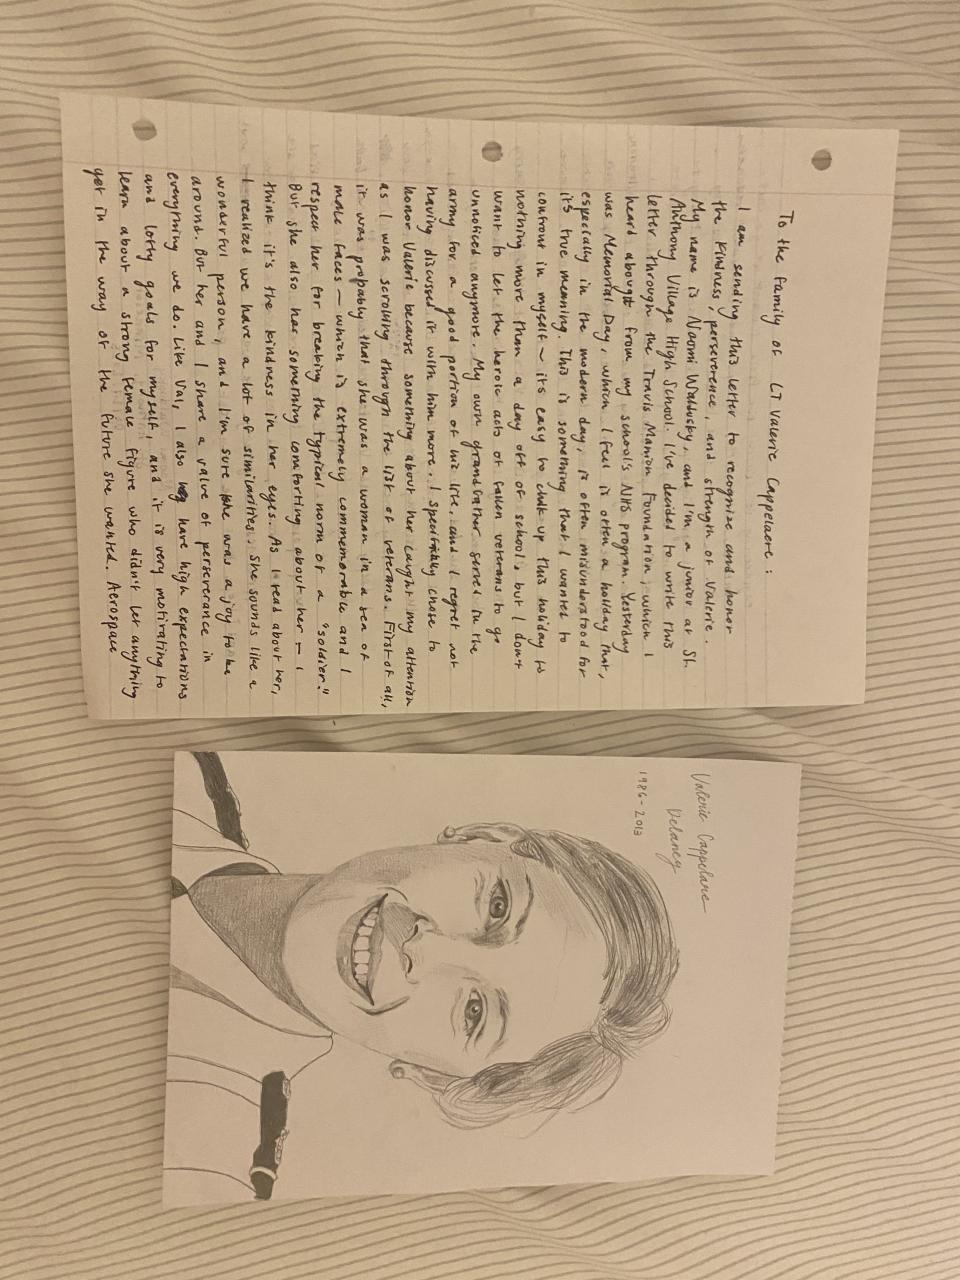 To the Family of LT Valerie Cappelaere:
I am sending this letter to recognize and honor
the kindness, perseverence, and strength of Valerie.
My name is Naomi Waldusky, and I'm a junior at St.
Anthony Village High School. I've decided to write this
letter through the Travis Manion Foundation, which I
heard about from my school's NHS program. Yesterday
was Memorial Day, which I feel is often a holiday that,
especially in the modern day, is often misunderstood for
it's true meaning. This is something that I wanted to
confront in myself – it's easy to chalk up this holiday to
nothing more than a day off of school, but I don't
want to let the heroic acts of fallen veterans to go
unnoticed anymore. My own grandfather served in the
army for a good portion of his life, and I regret not
having discussed it with him more. I specifically chose to
honor Valerie because something about her caught my attention
as I was scrolling through the list of veterans. First of all,
it was probably that she was a woman in a sea of
male faces – which is extremely commemorable and I
respect her for breaking the typical norm of a "soldier."
But she also has something comforting about her – I
think it's the kindness in her eyes. As I read about her,
I realized we have a lot of similarities. She sounds like a
wonderful person, and I'm sure she was a joy to be
around. But her and I share a value of perseverance in
everything we do. Like Val, I also have high expectations
and lofty goals for myself, and it is very motivating to
learn about a strong female figure who didn't let anything
get in the way of the future she wanted. Aerospace
Valerie Cappelaere
Delaney
1986-2013